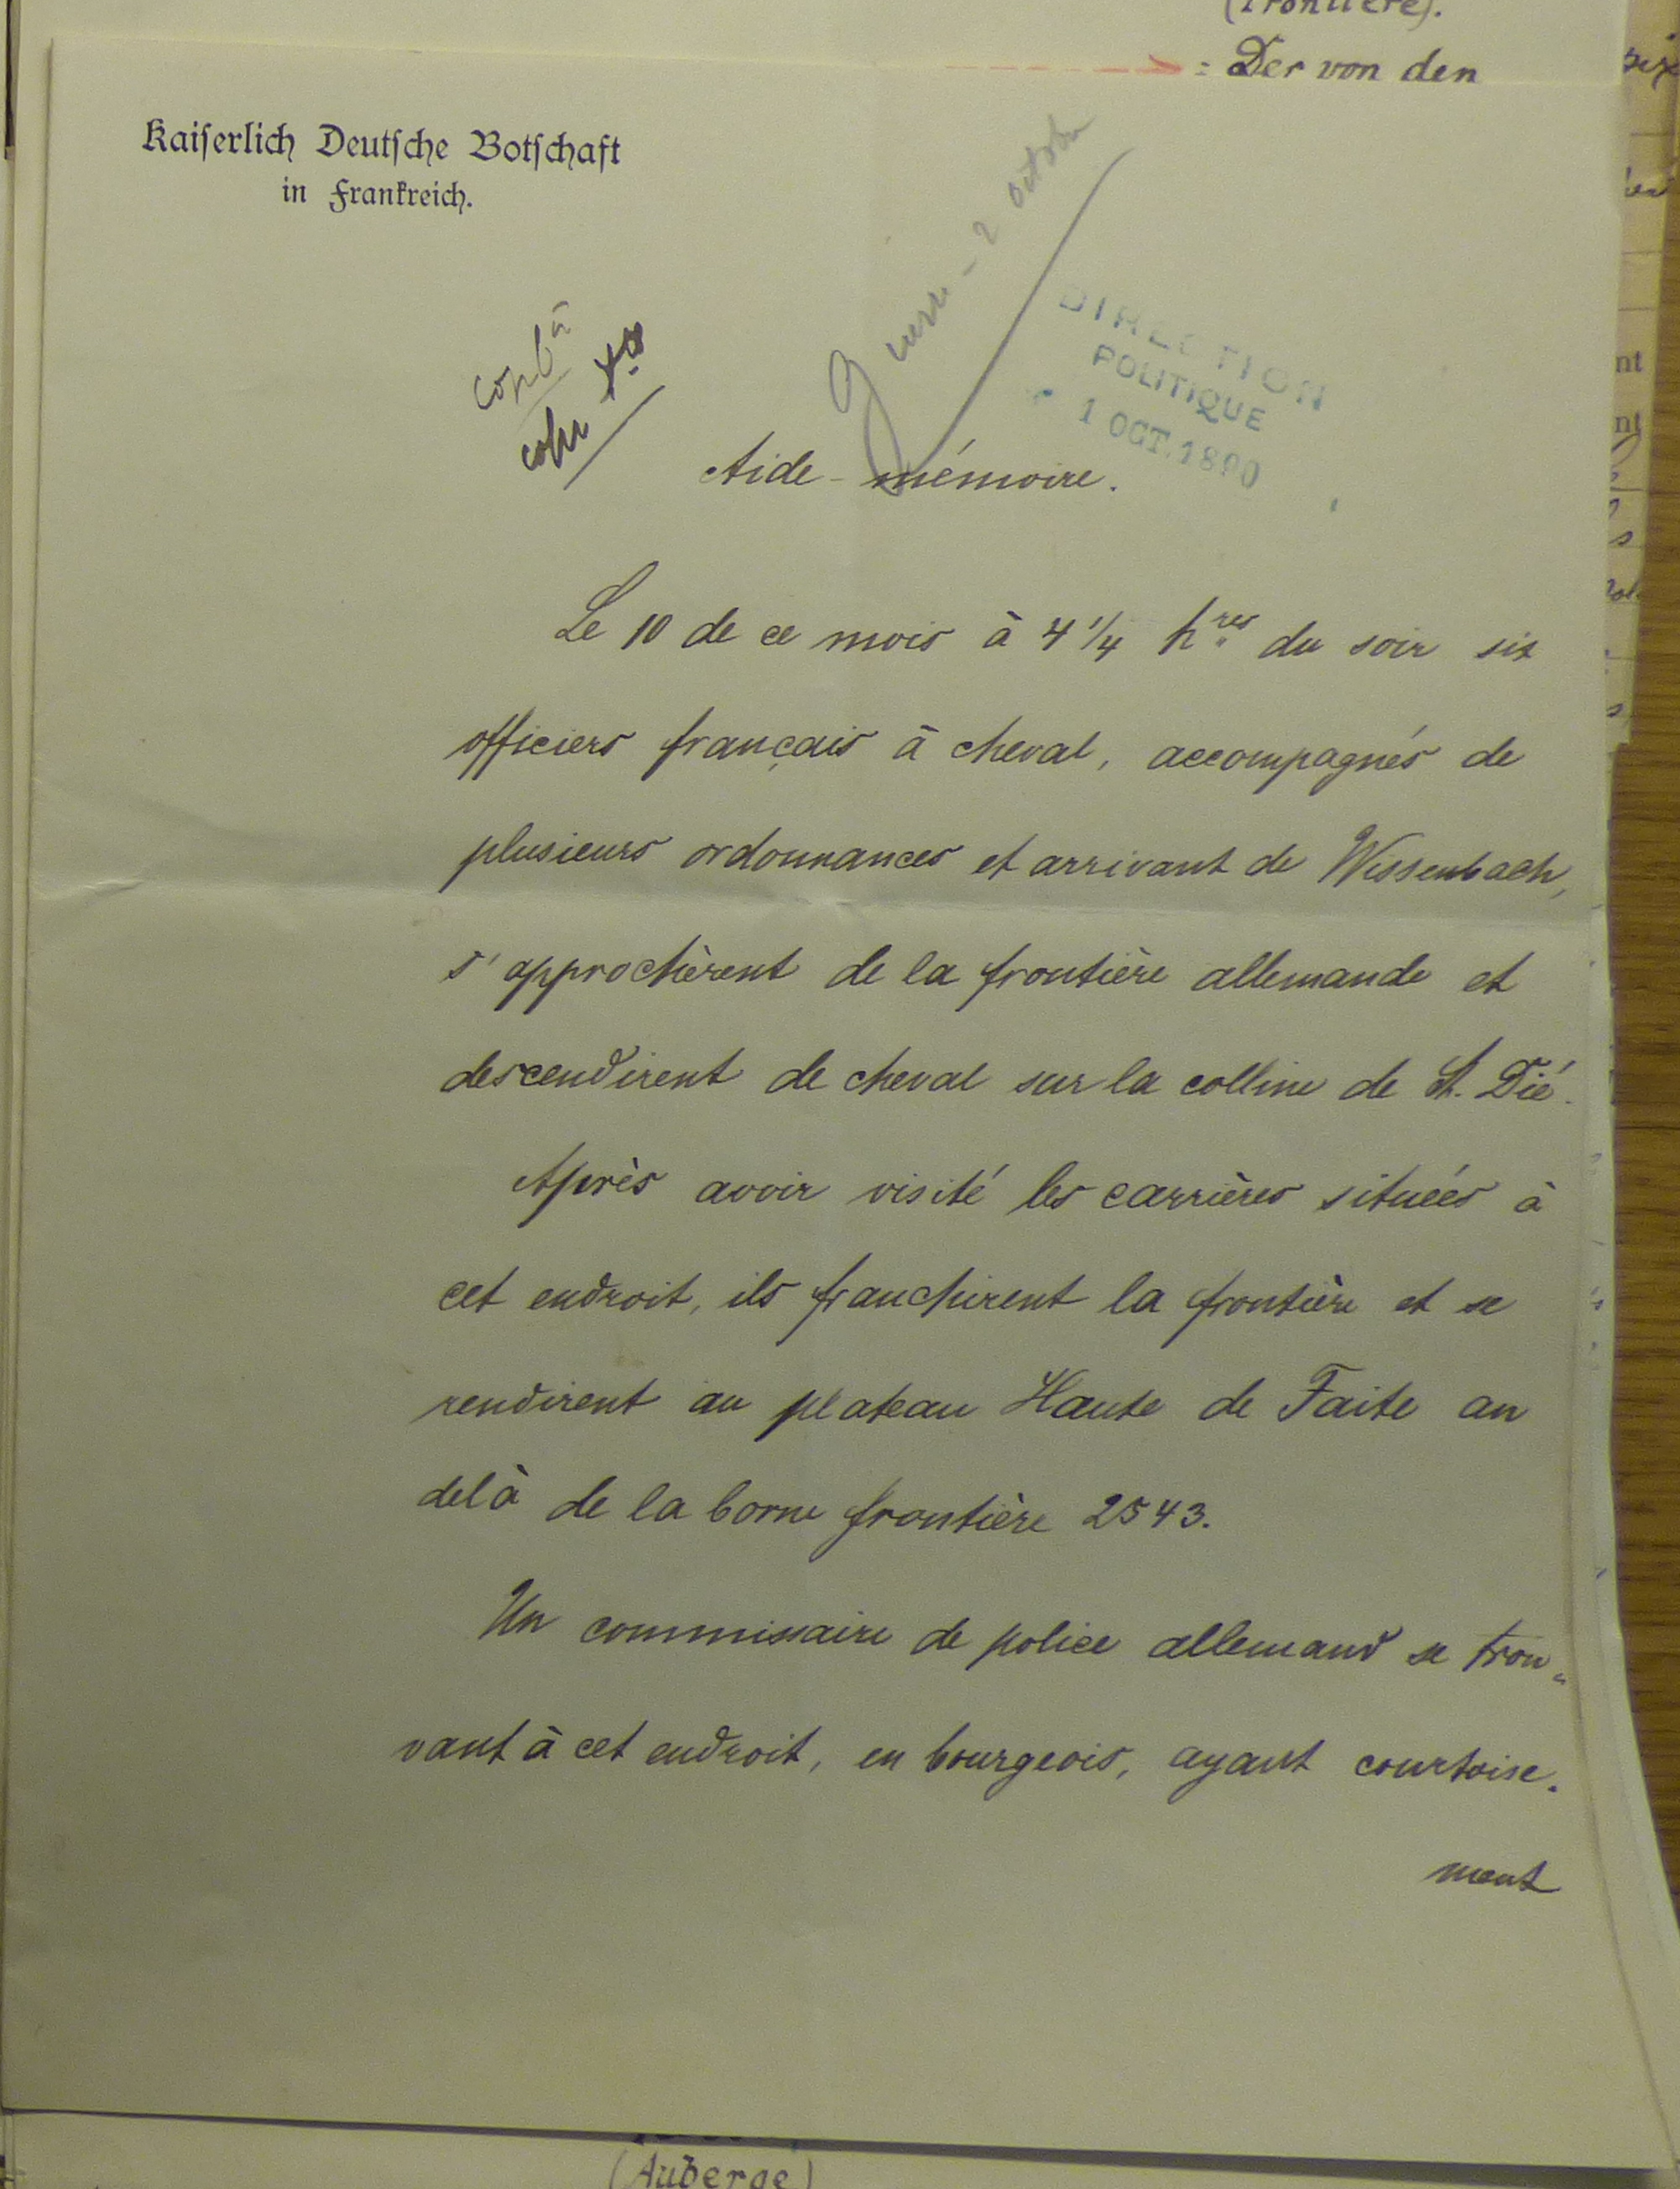 : Der von den
Kaiserlich Deutsche Botschaft
in Frankreich.
2 octobre
DIRECTION
POLITIQUE
1 OCT. 1890
Aide-mémoire.
Le 10 de ce mois à 4 1/4 hres du soir six
officiers français à cheval, accompagnés de
plusieurs ordonnances et arrivant de Wissenbach,
s'approchèrent de la frontière allemande et
descendirent de cheval sur la colline de St. Dié.
Après avoir visité les carrières situées à
cet endroit, ils franchirent la frontière et se
rendirent au plateau Haute de Faite au
delà de la borne frontière 2543.
Un commissaire de police allemand se trou-
vant à cet endroit, en bourgeois, ayant courtoise-
ment
(Auberge)